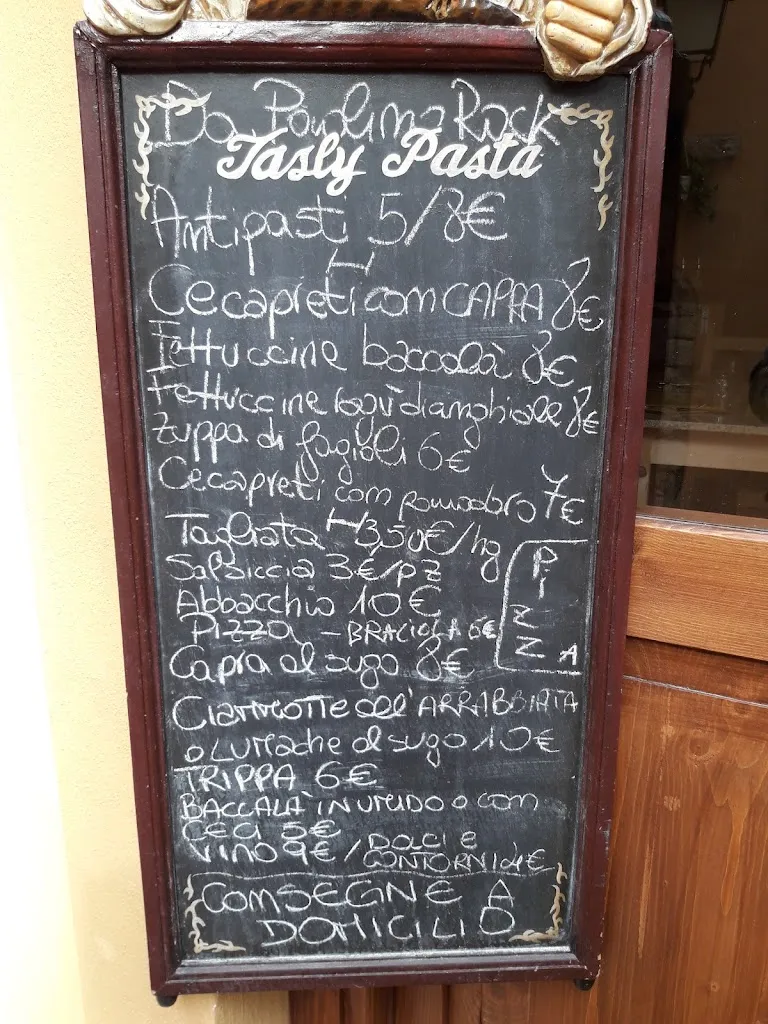 Da Paolina Rock
Tasly Pasta
Antipasti 5/8€
Cecapreti con CAPRA 8€
Fettuccine baccalà 8€
Fettuccine ragù di anghiale 8€
Zuppa di fagioli 6€
Cecapreti con pomodoro 7€
Tagliata 3,50€/hg
Salsiccia 3€/pz
Abbacchio 10€
Pizza - BRACIOLA 6€
PIZZA
Capra al sugo 8€
Ciammotte all'ARRABBIATA
o Lumache al sugo 10€
TRIPPA 6€
BACCALÀ IN UMIDO o con
CECI 5€
VINO 9€/DOLCI E
CONTORNI 4€
CONSEGNE A
DOMICILIO